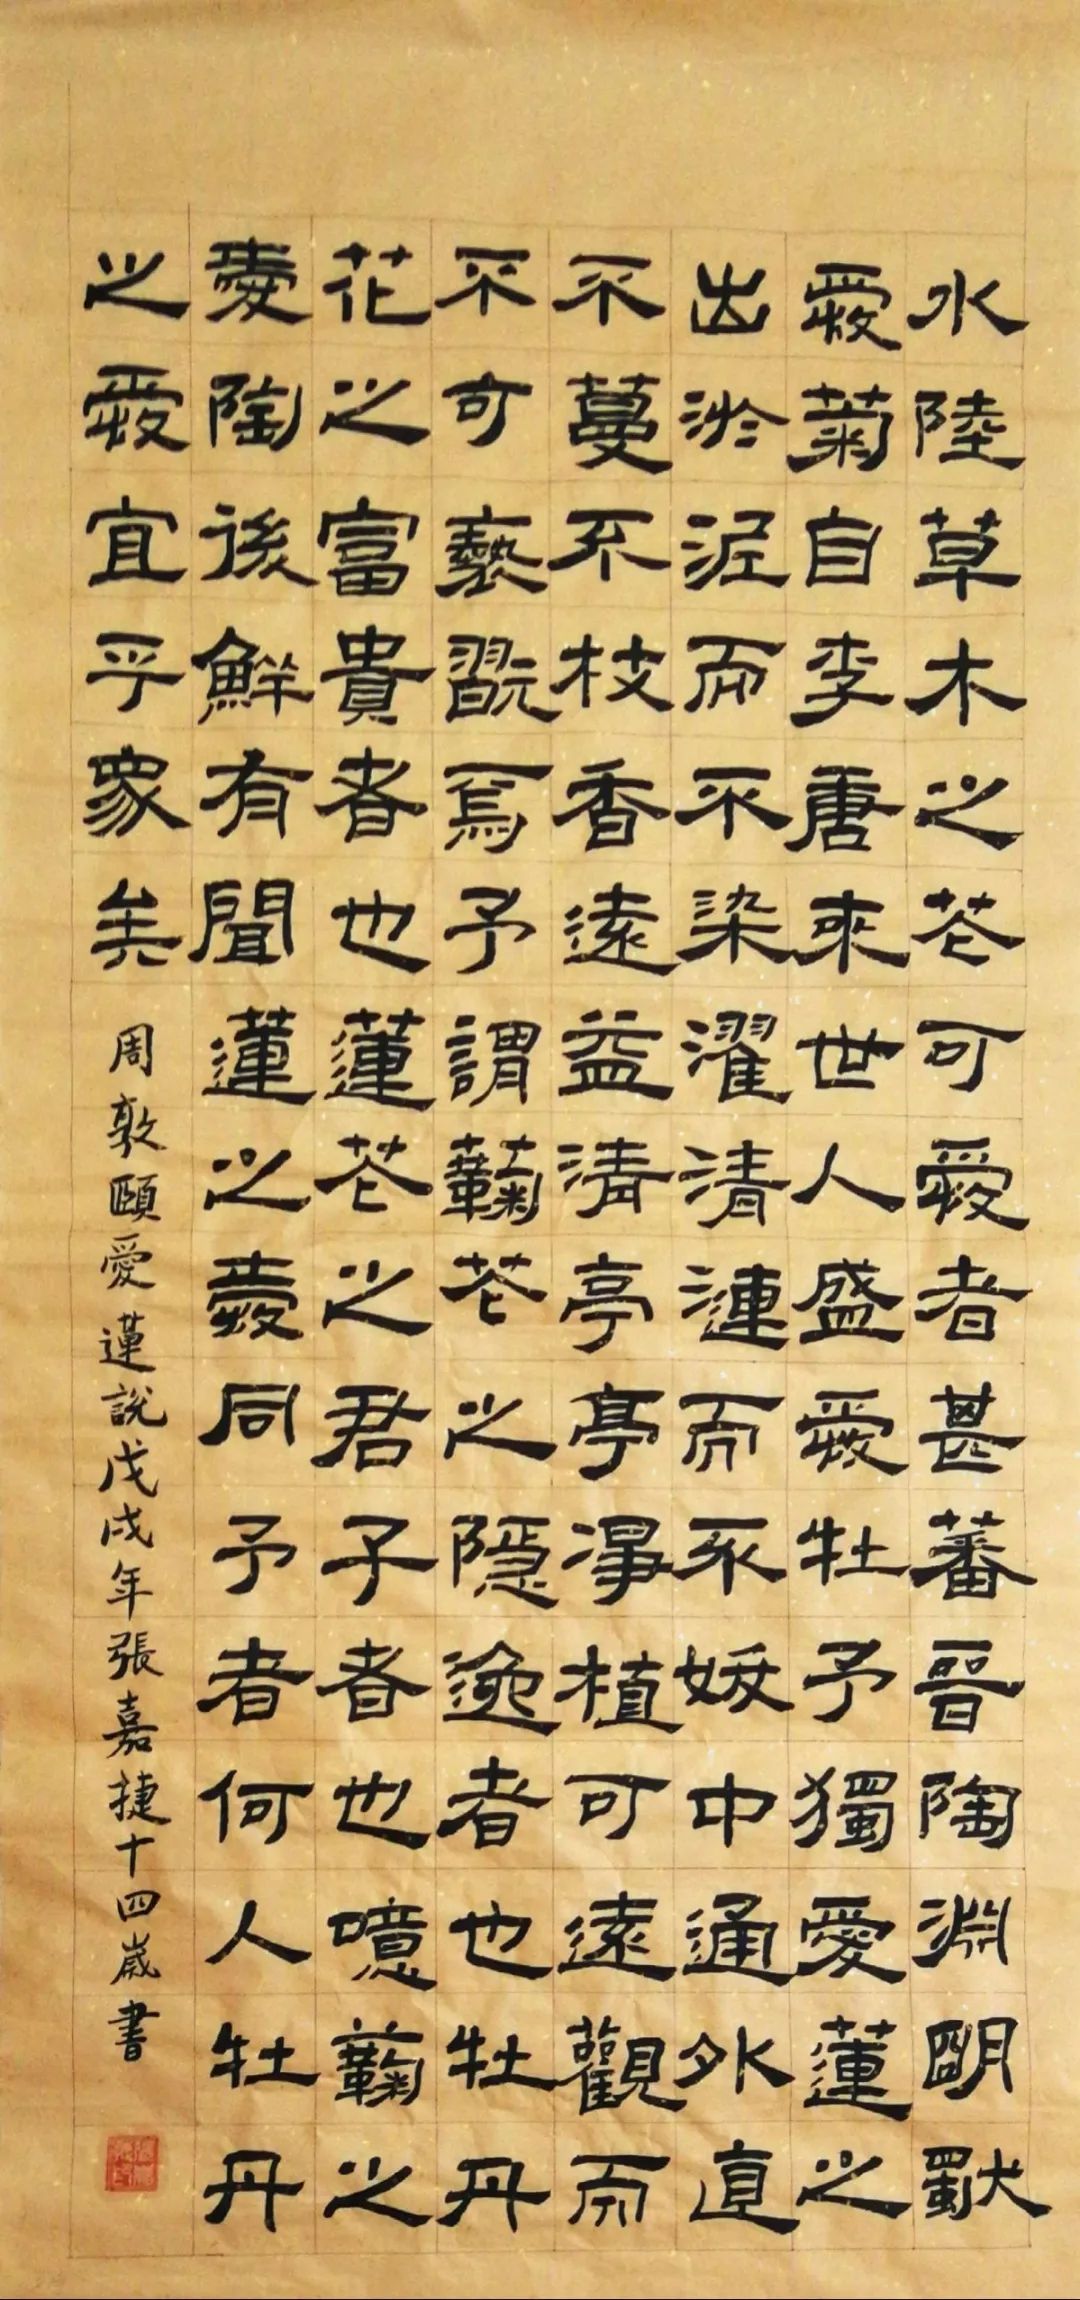 水陸草木之花可愛者甚蕃晉陶淵明獨
愛菊自李唐來世人盛愛牡予獨愛蓮之
出淤泥而不染濯清漣而不妖中通外直
不蔓不枝香遠益清亭亭淨植可遠觀而
不可褻翫焉予謂蘜花之隱逸者也牡丹
花之富貴者也蓮花之君子者也噫蘜之
愛陶後鮮有聞蓮之愛同予者何人牡丹
之愛宜乎衆矣
周敦頤愛蓮說戊戌年張嘉捷十四歲書